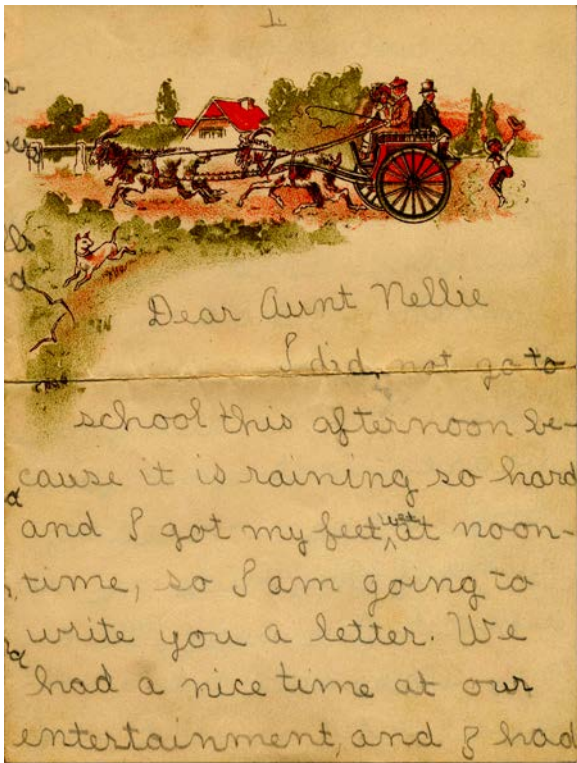 1.
Dear Aunt Nellie
I did not go to
school this afternoon be-
cause it is raining so hard
and I got my feet wet at noon-
time, so I am going to
write you a letter. We
had a nice time at our
entertainment, and I had